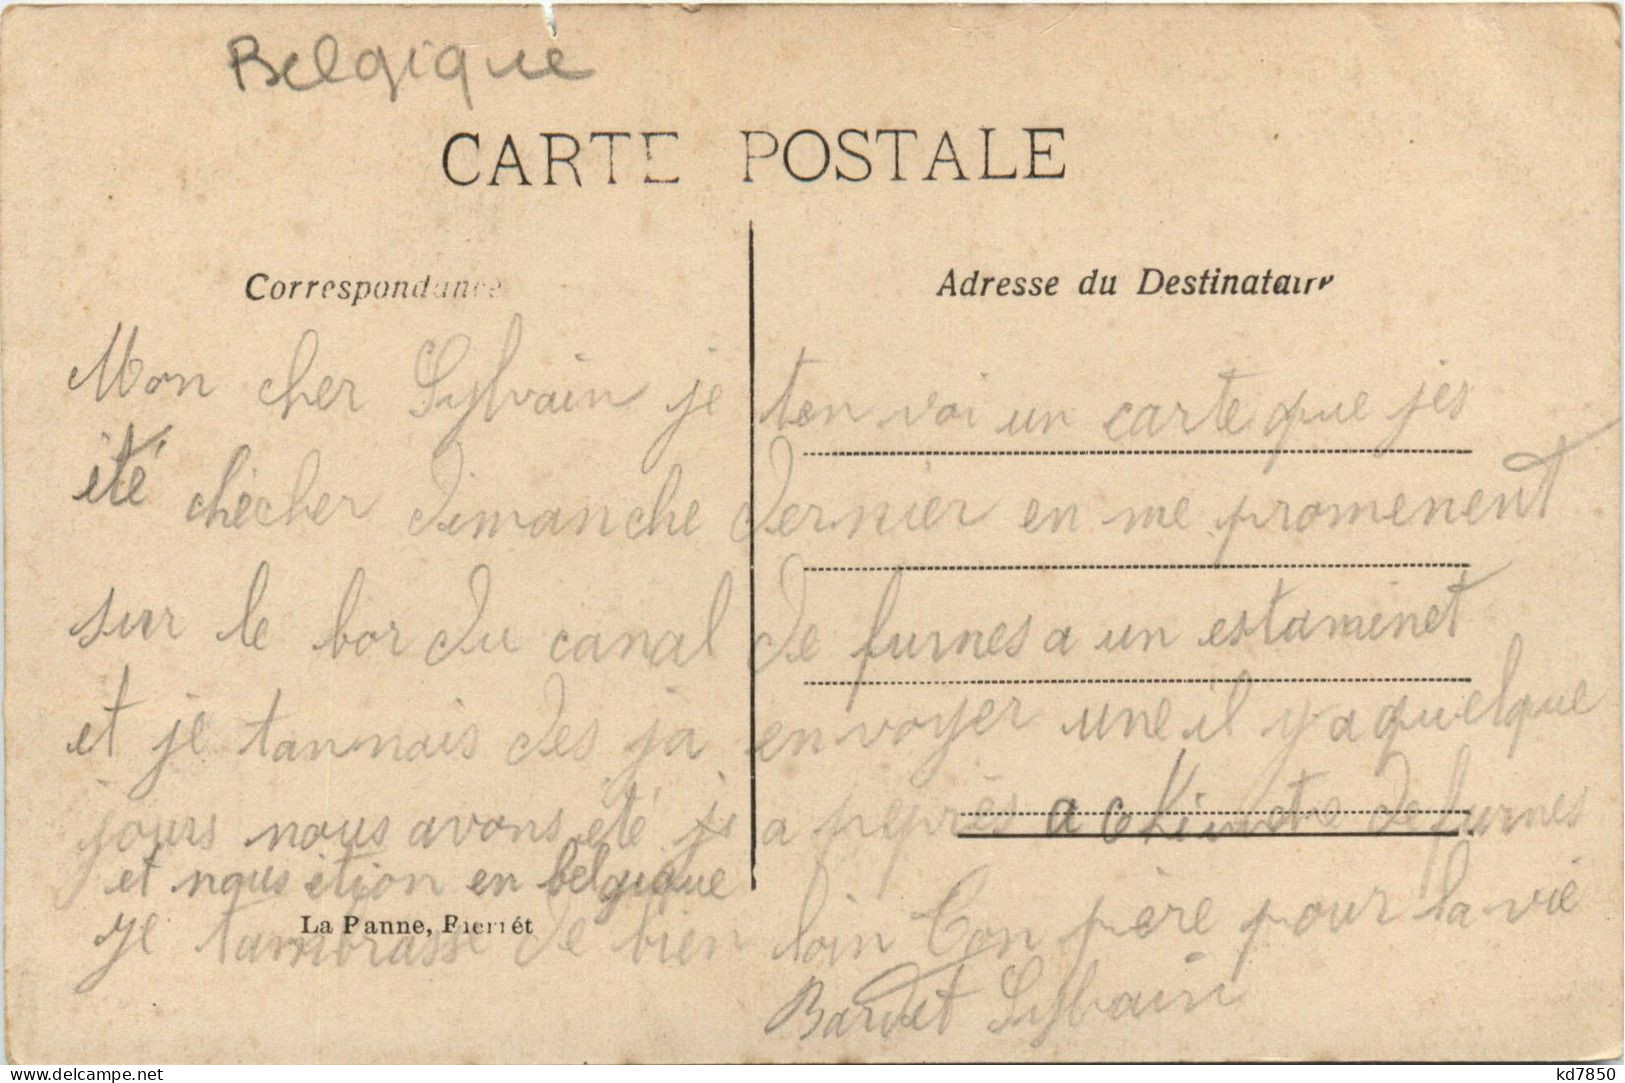 Belgique
CARTE POSTALE
Correspondance
Adresse du Destinataire
Mon cher Sylvain je ten voi un carte que jes
été chécher dimanche dernier en me promenent
sur le bor du canal de furnes a un estaminet
et je tannais des ja envoyer une il y a quelque
jours nous avons été je a peprès a 6 Kimets de furnes
et nous ition en belgique
La Panne, Pierrét
je tambrasse de bien loin Ton père pour la vie
Bardet Sylvain
kd7850